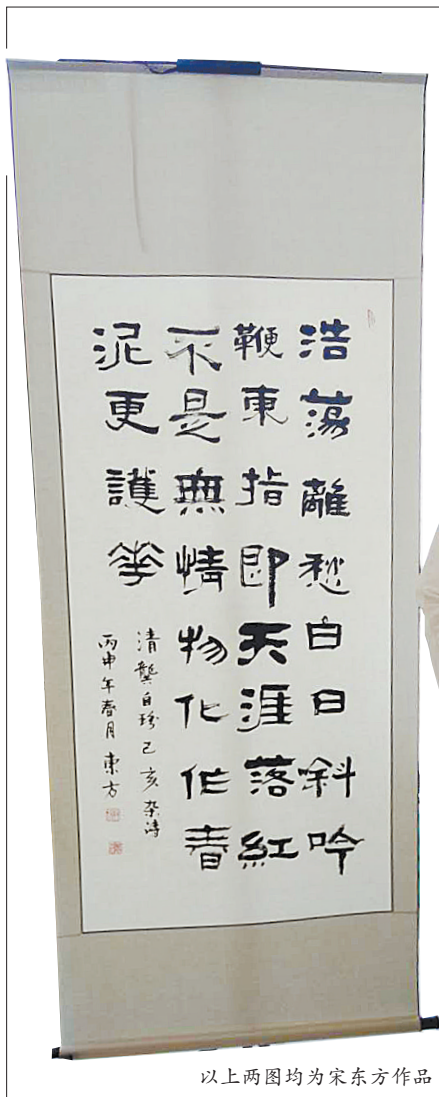 浩蕩離愁白日斜吟
鞭東指即天涯落紅
不是無情物化作春
泥更護花
清龔自珍己亥杂诗
丙申年春月東方
以上两图均为宋东方作品